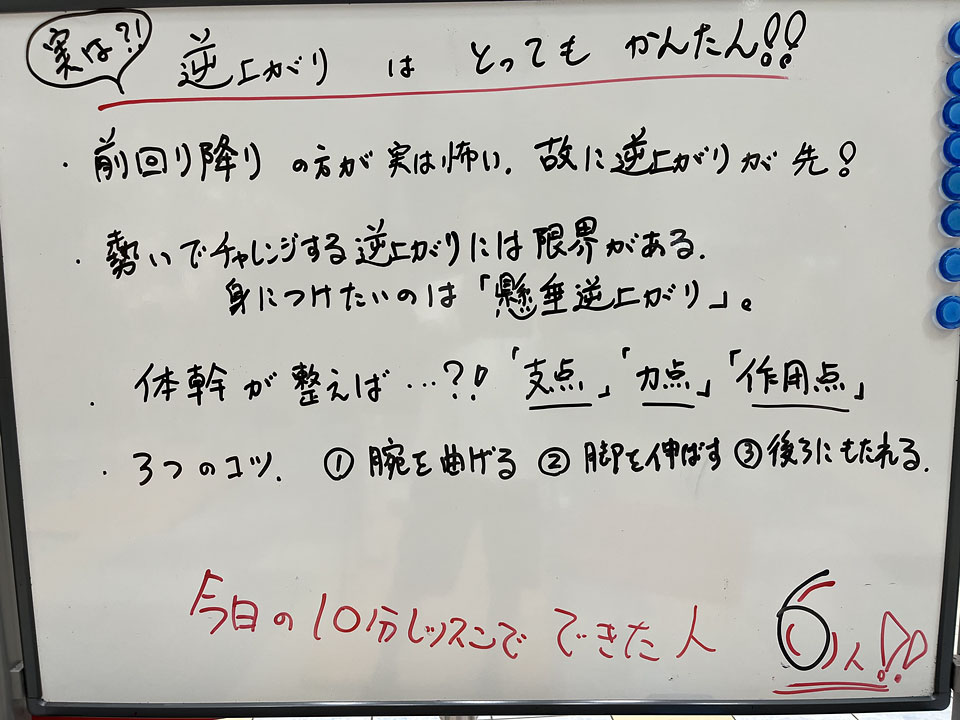 実は?! 逆上がり は とっても かんたん!!
・前回り降り の方が 実は怖い. 故に逆上がりが 先!
・勢いでチャレンジする逆上がりには限界がある.
身につけたいのは「懸垂逆上がり」。
・体幹が 整えば…?! 「支点」「力点」「作用点」
・3つのコツ. ①腕を曲げる ②脚を伸ばす ③後ろにもたれる.
今日の10分レッスンで できた人 6人!!